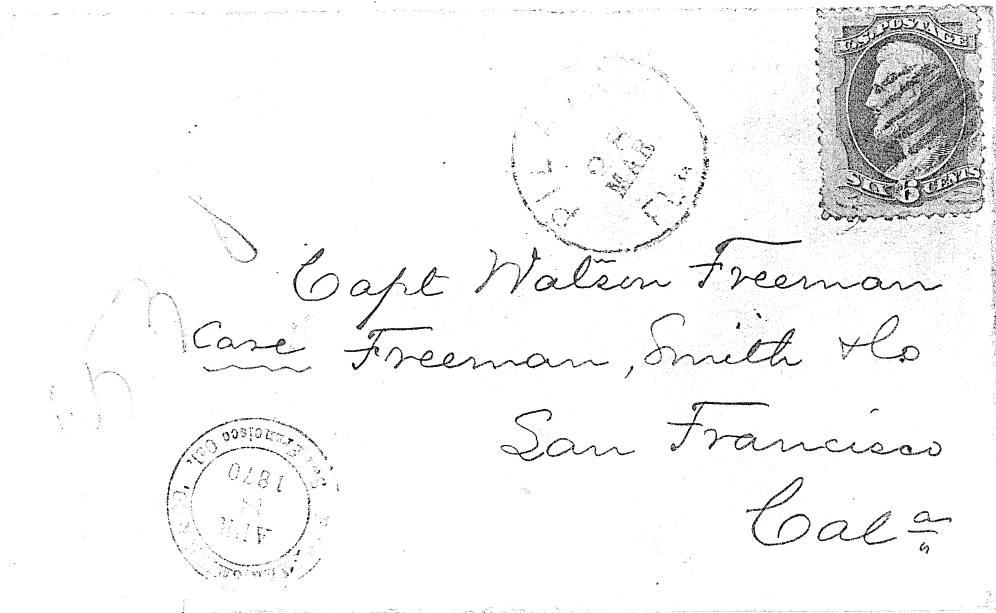 U.S. POSTAGE
SIX 6 CENTS
MAR
Fla
Capt Watson Freeman
Care Freeman, Smith & Co
San Francisco
Cala
San Francisco Cal.
1870